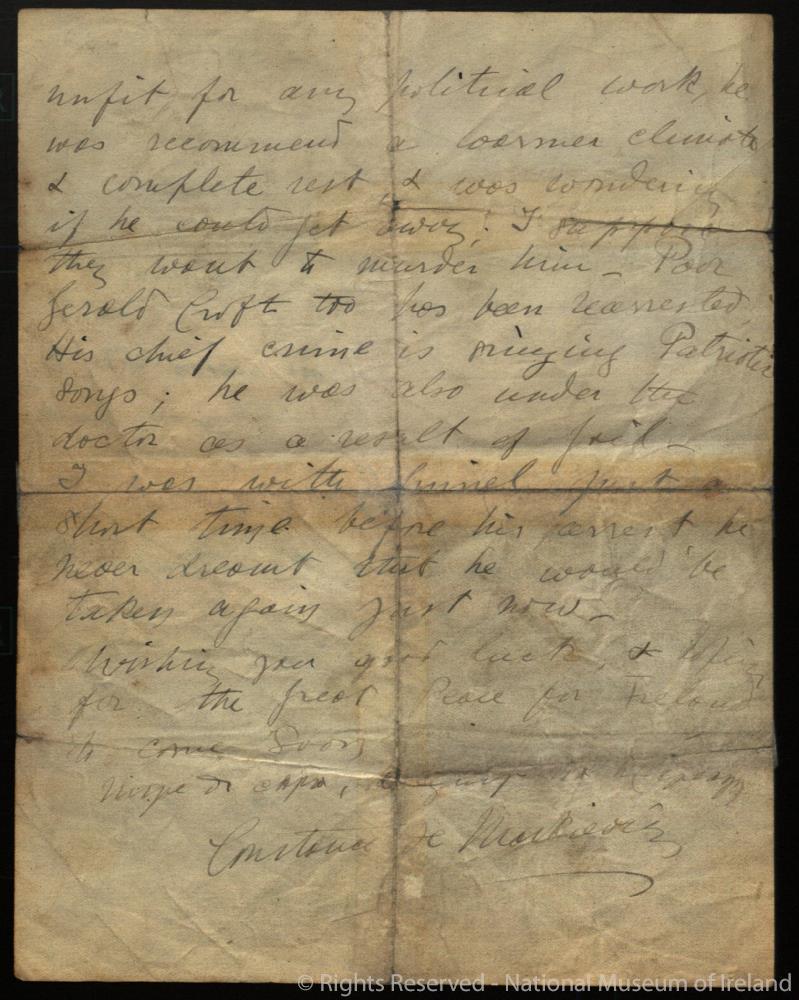 unfit for any political work, he
was recommend a warmer climate
& complete rest, & was wondering
if he could get away. I suppose
they want to murder him – Poor
Gerald Croft too has been rearrested.
His chief crime is singing Patriotic
songs; he was also under the
doctor as a result of jail –
I was with just a
short time before his arrest he
never dreamt that he would be
taken again just now –
Wishing you good luck, &
for the great Peace for Ireland
to come soon

Constance de Markievicz
© Rights Reserved - National Museum of Ireland